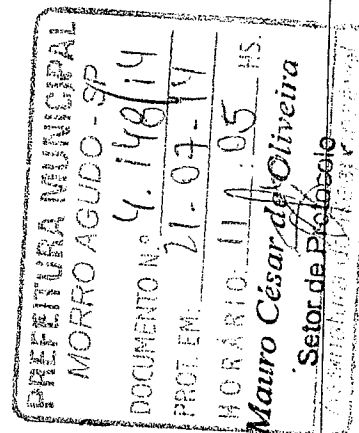 PREFEITURA MUNICIPAL
MORRO AGUDO - SP
DOCUMENTO N.º 4.148/14
PROT. EM. 21-07-14
HORÁRIO 11:05 HS.
Mauro César de Oliveira
Setor de Protocolo